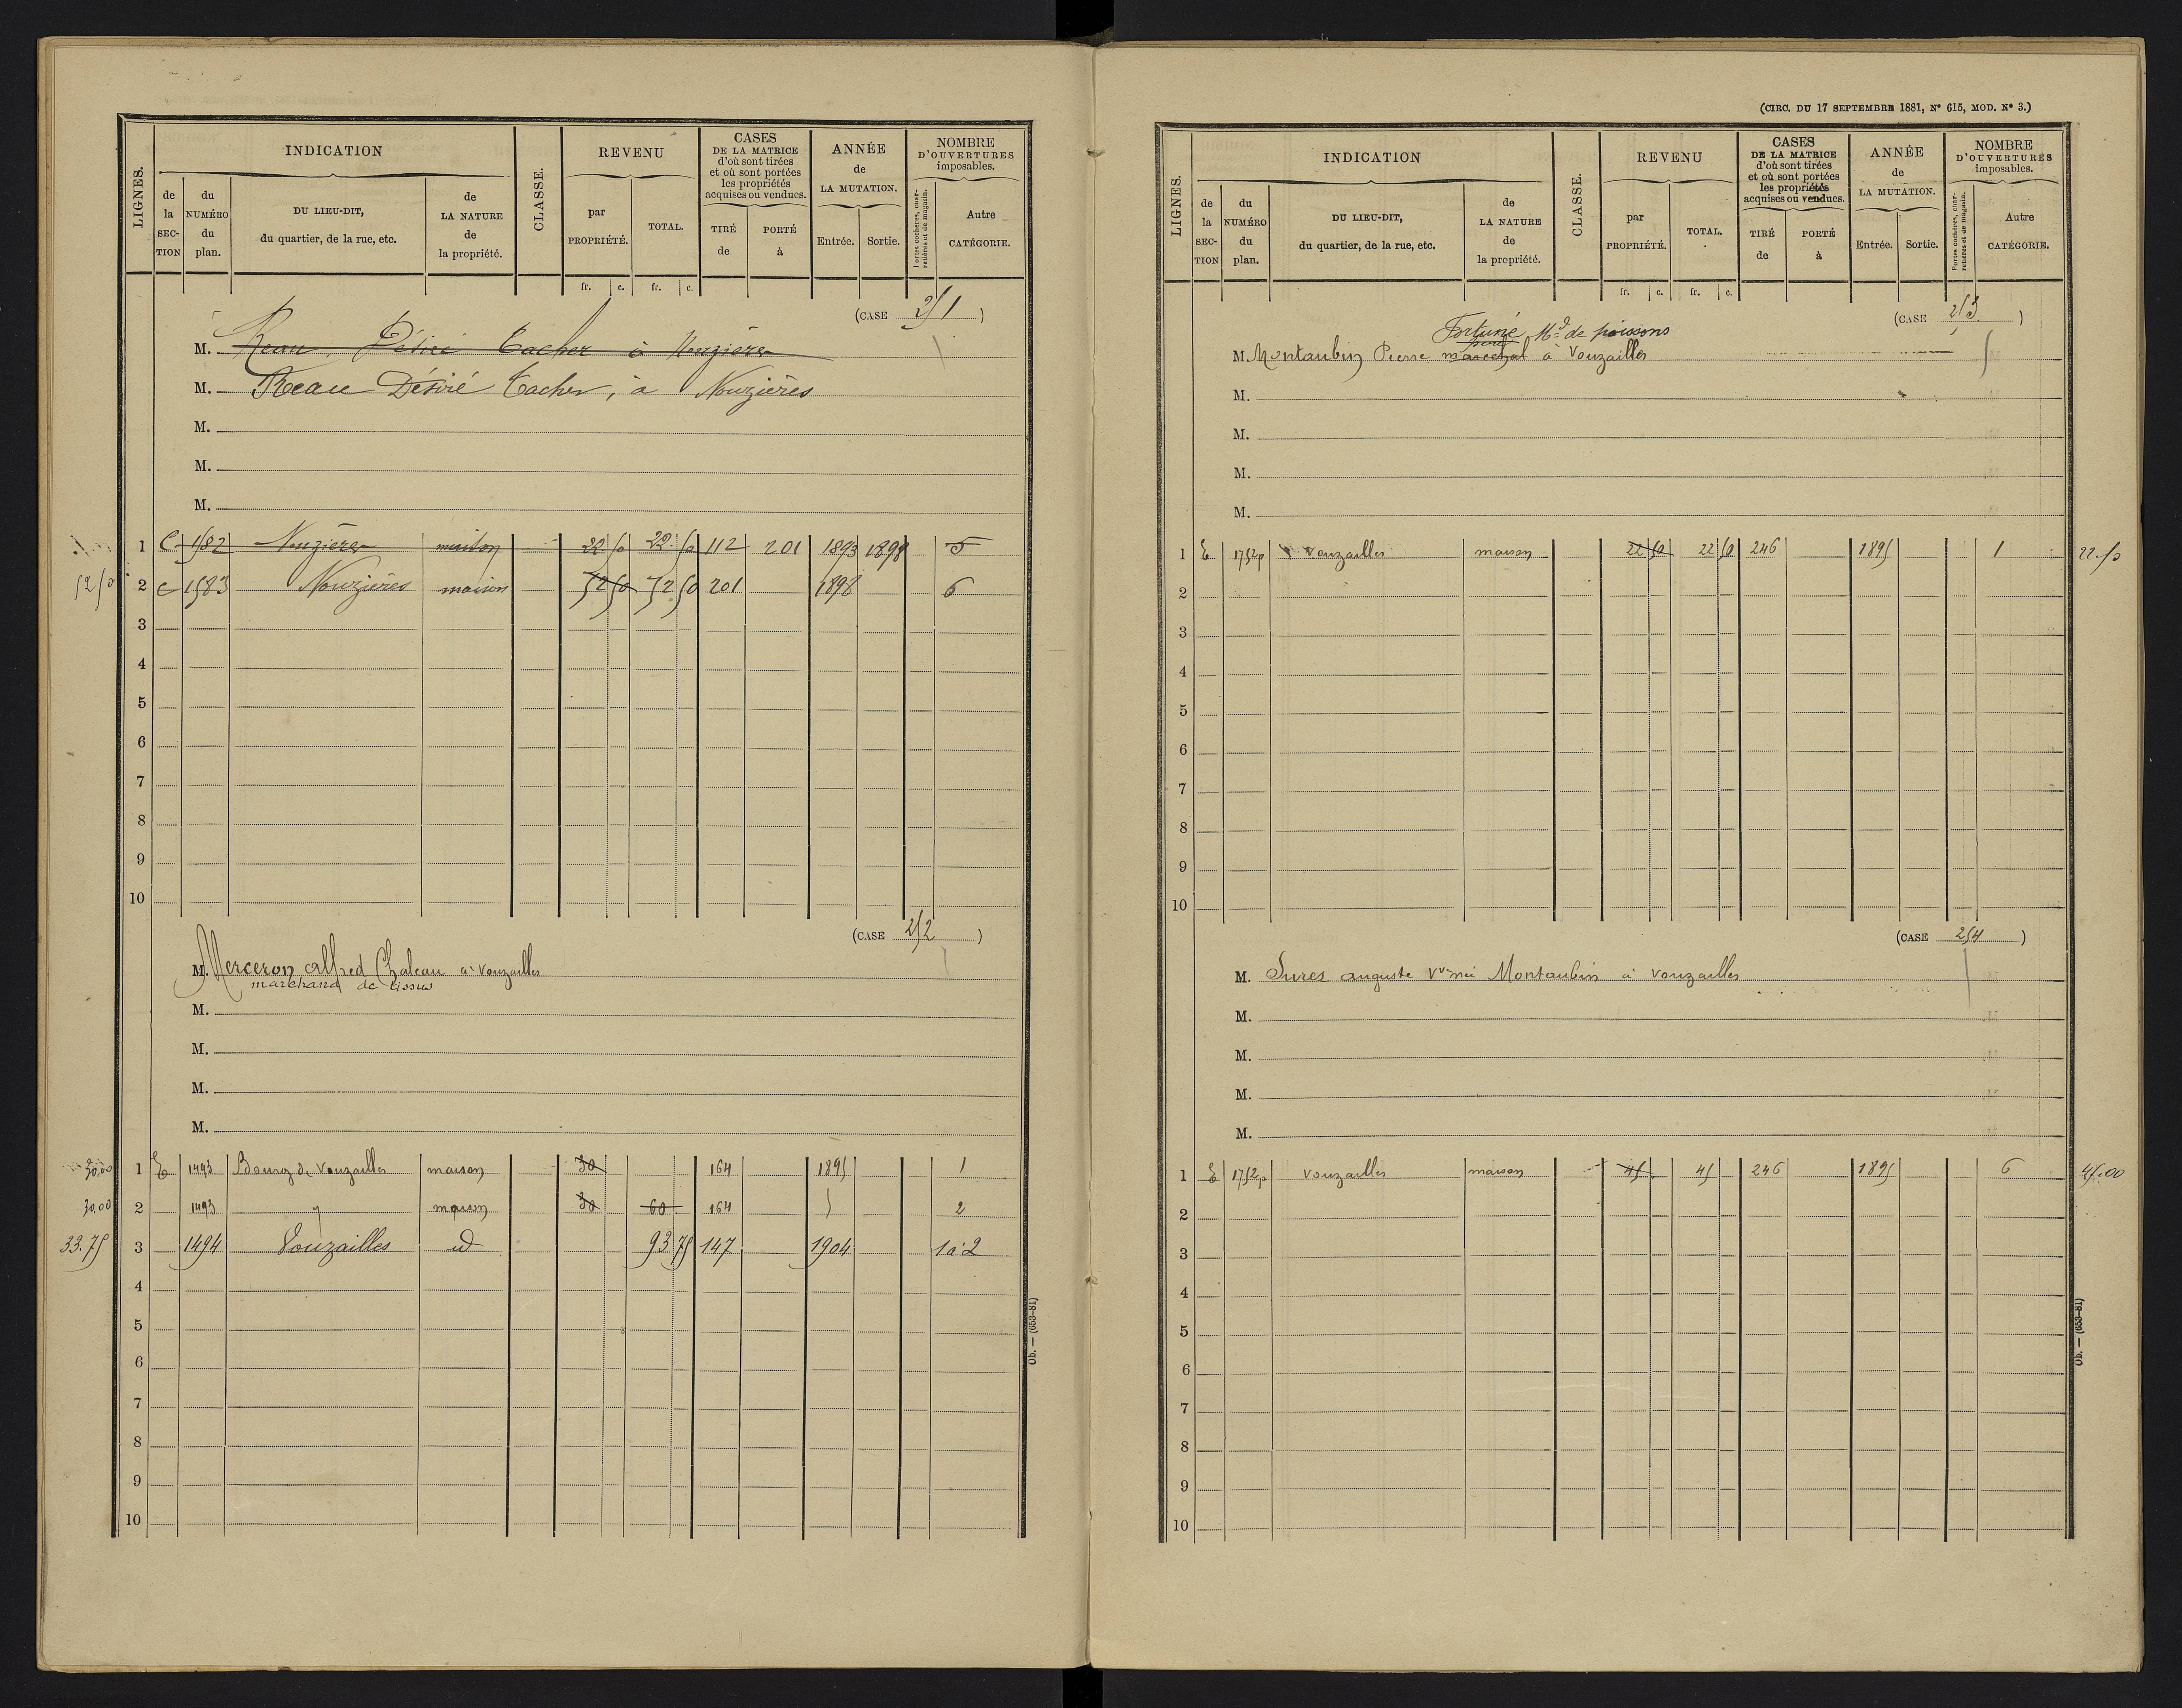 LIGNES.
INDICATION
de la SECTION
du NUMÉRO du plan.
DU LIEU-DIT, du quartier, de la rue, etc.
de LA NATURE de la propriété.
CLASSE.
REVENU
par PROPRIÉTÉ.
TOTAL.
CASES DE LA MATRICE d'où sont tirées et où sont portées les propriétés acquises ou vendues.
TIRÉ de
PORTÉ à
ANNÉE de LA MUTATION.
Entrée.
Sortie.
NOMBRE D'OUVERTURES imposables.
Portes cochères, charretières et de magasin.
Autre CATÉGORIE.
fr. c. fr. c.
(CASE 251)
M. Reau Désiré Cacher à Nouzières
M. Reau Désiré Cacher, à Nouzières
M.
M.
M.
1 C 1582 Nouzières maison 22 50 22 50 112 201 1893 1898 5
52 50 2 C 1583 Nouzières maison 52 50 52 50 201 1898 6
3
4
5
6
7
8
9
10
(CASE 252)
M. Merceron Alfred Chaleau à Vouzailles
marchand de tissus
M.
M.
M.
M.
30.00 1 E 1493 Bourg de Vouzailles maison 30 164 1895 1
30.00 2 1493 maison 30 60 164 2
33.75 3 1494 Vouzailles id 93 75 147 1904 1 à 2
4
5
6
7
8
9
10
Ob. — (653-81)
(CIRC. DU 17 SEPTEMBRE 1881, N° 615, MOD. N° 3.)
LIGNES.
INDICATION
de la SECTION
du NUMÉRO du plan.
DU LIEU-DIT, du quartier, de la rue, etc.
de LA NATURE de la propriété.
CLASSE.
REVENU
par PROPRIÉTÉ.
TOTAL.
CASES DE LA MATRICE d'où sont tirées et où sont portées les propriétés acquises ou vendues.
TIRÉ de
PORTÉ à
ANNÉE de LA MUTATION.
Entrée.
Sortie.
NOMBRE D'OUVERTURES imposables.
Portes cochères, charretières et de magasin.
Autre CATÉGORIE.
fr. c. fr. c.
(CASE 253)
Fortuné, Md de poissons
M. Montaubin Pierre maréchal à Vouzailles
M.
M.
M.
M.
1 E 1752p Vouzailles maison 22 50 22 50 246 1895 1 22.50
2
3
4
5
6
7
8
9
10
(CASE 254)
M. Sures auguste Vve née Montaubin à Vouzailles
M.
M.
M.
M.
1 E 1752p Vouzailles maison 45 45 246 1895 6 45.00
2
3
4
5
6
7
8
9
10
Ob. — (653-81)